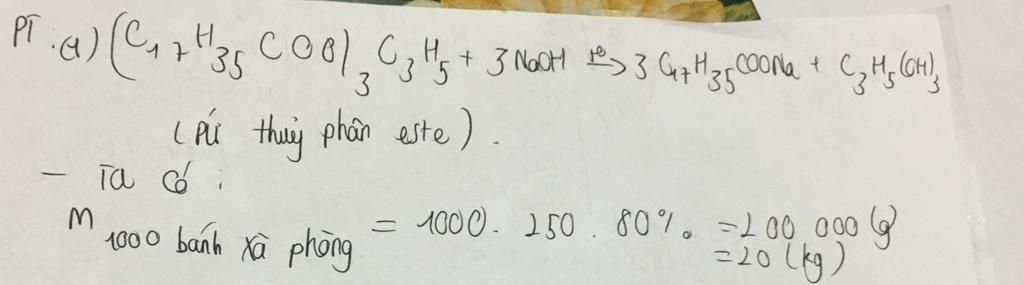 PT. a) (C₁₇H₃₅COO)₃C₃H₅ + 3NaOH →(t°) 3C₁₇H₃₅COONa + C₃H₅(OH)₃
(PỨ thuỷ phân este).
- Ta có:
m 1000 bánh xà phòng = 1000. 250. 80% = 200 000 (g)
= 20 (kg)